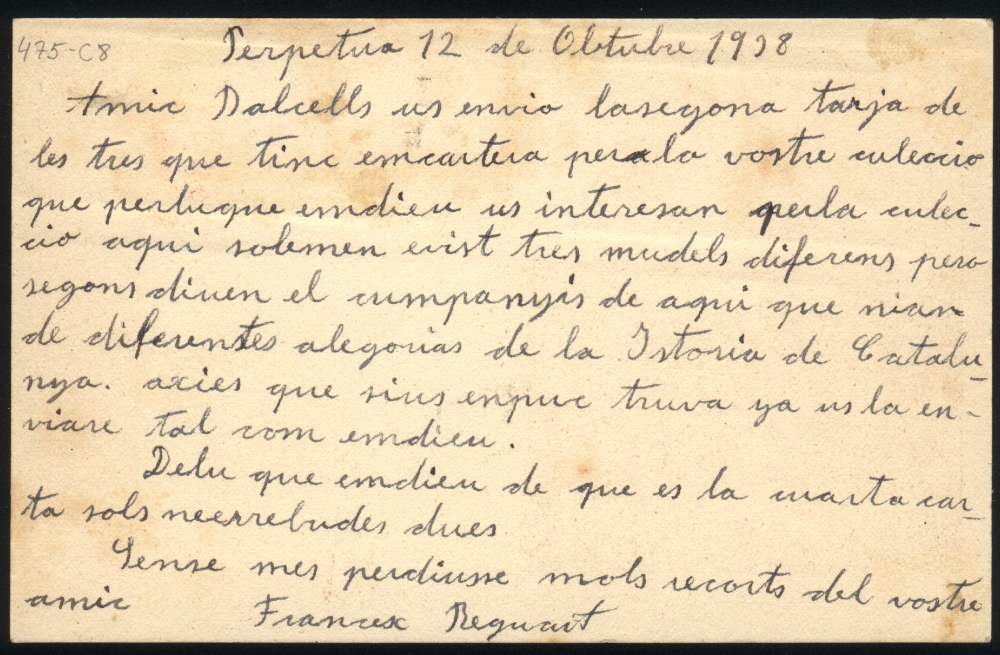 475-C8
Perpetua 12 de Obtubre 1938
Amic Dalcells us envio lasegona tarja de
les tres que tinc emcartera perala vostre culeccio
que perluque emdieu us interesan perla culec-
cio aqui solemen exist tres mudels diferens pero
segons diuen el cumpanyis de aqui que nian
de diferentes alegorias de la Istoria de Catalu-
nya. axies que sius enpuc truva ya us la en-
viare tal com emdieu.
Delu que emdieu de que es la cuarta car-
ta sols neerrebudes dues
Sense mes perdiusse mols recorts del vostre
amic Francesc Reguart